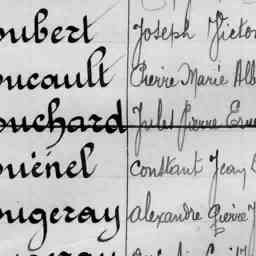 oubert Joseph Victor
oucault Pierre Marie Alb
ouchard Jules Pierre Erne
ouénel Constant Jean
ougeray alexandre Pierre J